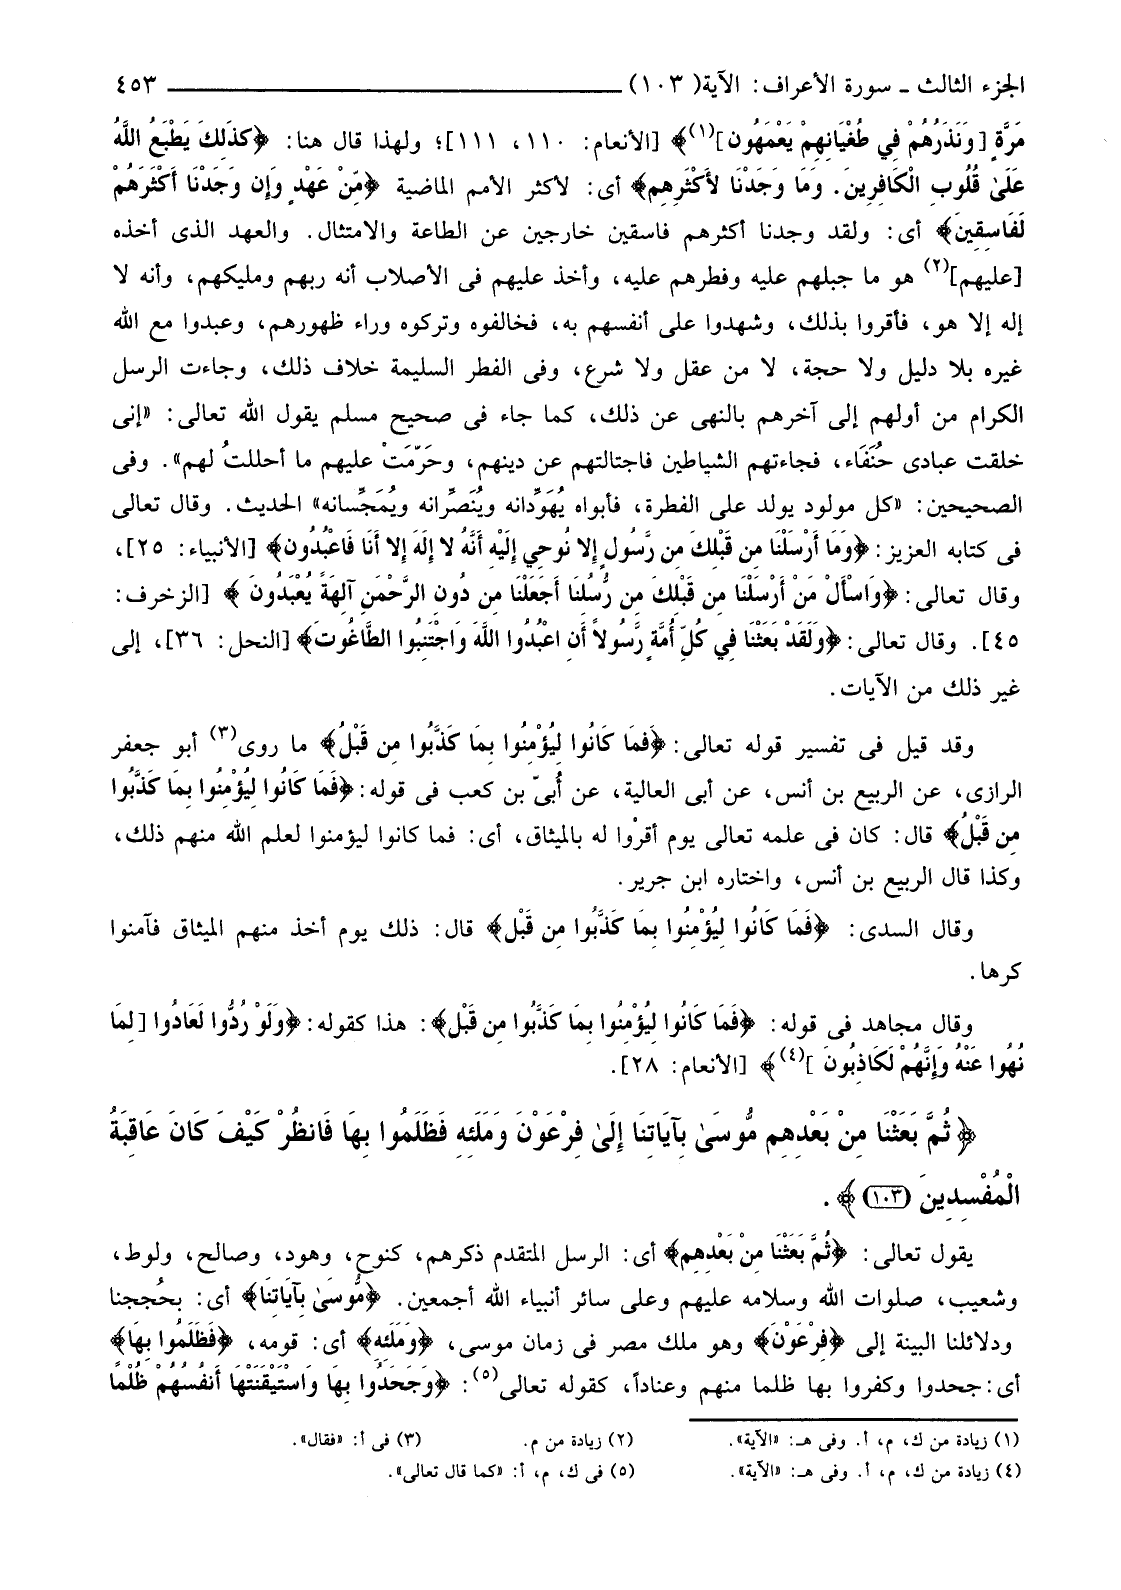 الجزء الثالث ـ سورة الأعراف: الآية(١٠٣) ٤٥٣
مَرَّةٍ [وَنَذَرُهُمْ فِي طُغْيَانِهِمْ يَعْمَهُون](١)﴾ [الأنعام: ١١٠، ١١١]؛ ولهذا قال هنا: ﴿كَذَلِكَ يَطْبَعُ اللَّهُ
عَلَىٰ قُلُوبِ الْكَافِرِينَ. وَمَا وَجَدْنَا لأَكْثَرِهِم﴾ أى: لأكثر الأمم الماضية ﴿مِّنْ عَهْدٍ وَإِن وَجَدْنَا أَكْثَرَهُمْ
لَفَاسِقِينَ﴾ أى: ولقد وجدنا أكثرهم فاسقين خارجين عن الطاعة والامتثال. والعهد الذى أخذه
[عليهم](٢) هو ما جبلهم عليه وفطرهم عليه، وأخذ عليهم فى الأصلاب أنه ربهم ومليكهم، وأنه لا
إله إلا هو، فأقروا بذلك، وشهدوا على أنفسهم به، فخالفوه وتركوه وراء ظهورهم، وعبدوا مع الله
غيره بلا دليل ولا حجة، لا من عقل ولا شرع، وفى الفطر السليمة خلاف ذلك، وجاءت الرسل
الكرام من أولهم إلى آخرهم بالنهى عن ذلك، كما جاء فى صحيح مسلم يقول الله تعالى: «إنى
خلقت عبادى حُنَفَاء، فجاءتهم الشياطين فاجتالتهم عن دينهم، وحَرّمَتْ عليهم ما أحللتُ لهم». وفى
الصحيحين: «كل مولود يولد على الفطرة، فأبواه يُهَوِّدانه ويُنَصِّرانه ويُمَجِّسانه» الحديث. وقال تعالى
فى كتابه العزيز: ﴿وَمَا أَرْسَلْنَا مِن قَبْلِكَ مِن رَّسُولٍ إِلا نُوحِي إِلَيْهِ أَنَّهُ لا إِلَهَ إِلا أَنَا فَاعْبُدُون﴾ [الأنبياء: ٢٥]،
وقال تعالى: ﴿وَاسْأَلْ مَنْ أَرْسَلْنَا مِن قَبْلِكَ مِن رُّسُلِنَا أَجَعَلْنَا مِن دُونِ الرَّحْمَنِ آلِهَةً يُعْبَدُونَ﴾ [الزخرف:
٤٥]. وقال تعالى: ﴿وَلَقَدْ بَعَثْنَا فِي كُلِّ أُمَّةٍ رَّسُولاً أَنِ اعْبُدُوا اللَّهَ وَاجْتَنِبُوا الطَّاغُوتَ﴾[النحل: ٣٦]، إلى
غير ذلك من الآيات.
وقد قيل فى تفسير قوله تعالى: ﴿فَمَا كَانُوا لِيُؤْمِنُوا بِمَا كَذَّبُوا مِن قَبْلُ﴾ ما روى(٣) أبو جعفر
الرازى، عن الربيع بن أنس، عن أبى العالية، عن أُبىّ بن كعب فى قوله: ﴿فَمَا كَانُوا لِيُؤْمِنُوا بِمَا كَذَّبُوا
مِن قَبْلُ﴾ قال: كان فى علمه تعالى يوم أقرْوا له بالميثاق، أى: فما كانوا ليؤمنوا لعلم الله منهم ذلك،
وكذا قال الربيع بن أنس، واختاره ابن جرير.
وقال السدى: ﴿فَمَا كَانُوا لِيُؤْمِنُوا بِمَا كَذَّبُوا مِن قَبْل﴾ قال: ذلك يوم أخذ منهم الميثاق فآمنوا
كرها.
وقال مجاهد فى قوله: ﴿فَمَا كَانُوا لِيُؤْمِنُوا بِمَا كَذَّبُوا مِن قَبْل﴾: هذا كقوله: ﴿وَلَوْ رُدُّوا لَعَادُوا [لِمَا
نُهُوا عَنْهُ وَإِنَّهُمْ لَكَاذِبُونَ](٤)﴾ [الأنعام: ٢٨].
﴿ثُمَّ بَعَثْنَا مِنْ بَعْدِهِم مُّوسَىٰ بِآيَاتِنَا إِلَىٰ فِرْعَوْنَ وَمَلَئِهِ فَظَلَمُوا بِهَا فَانظُرْ كَيْفَ كَانَ عَاقِبَةُ
الْمُفْسِدِينَ (١٠٣)﴾.
يقول تعالى: ﴿ثُمَّ بَعَثْنَا مِنْ بَعْدِهِم﴾ أى: الرسل المتقدم ذكرهم، كنوح، وهود، وصالح، ولوط،
وشعيب، صلوات الله وسلامه عليهم وعلى سائر أنبياء الله أجمعين. ﴿مُّوسَىٰ بِآيَاتِنَا﴾ أى: بحُججنا
ودلائلنا البينة إلى ﴿فِرْعَوْنَ﴾ وهو ملك مصر فى زمان موسى، ﴿وَمَلَئِهِ﴾ أى: قومه، ﴿فَظَلَمُوا بِهَا﴾
أى: جحدوا وكفروا بها ظلما منهم وعناداً، كقوله تعالى(٥): ﴿وَجَحَدُوا بِهَا وَاسْتَيْقَنَتْهَا أَنفُسُهُمْ ظُلْمًا
(١) زيادة من ك، م، أ. وفى هـ: «الآية». (٢) زيادة من م. (٣) فى أ: «فقال».
(٤) زيادة من ك، م، أ. وفى هـ: «الآية». (٥) فى ك، م، أ: «كما قال تعالى».